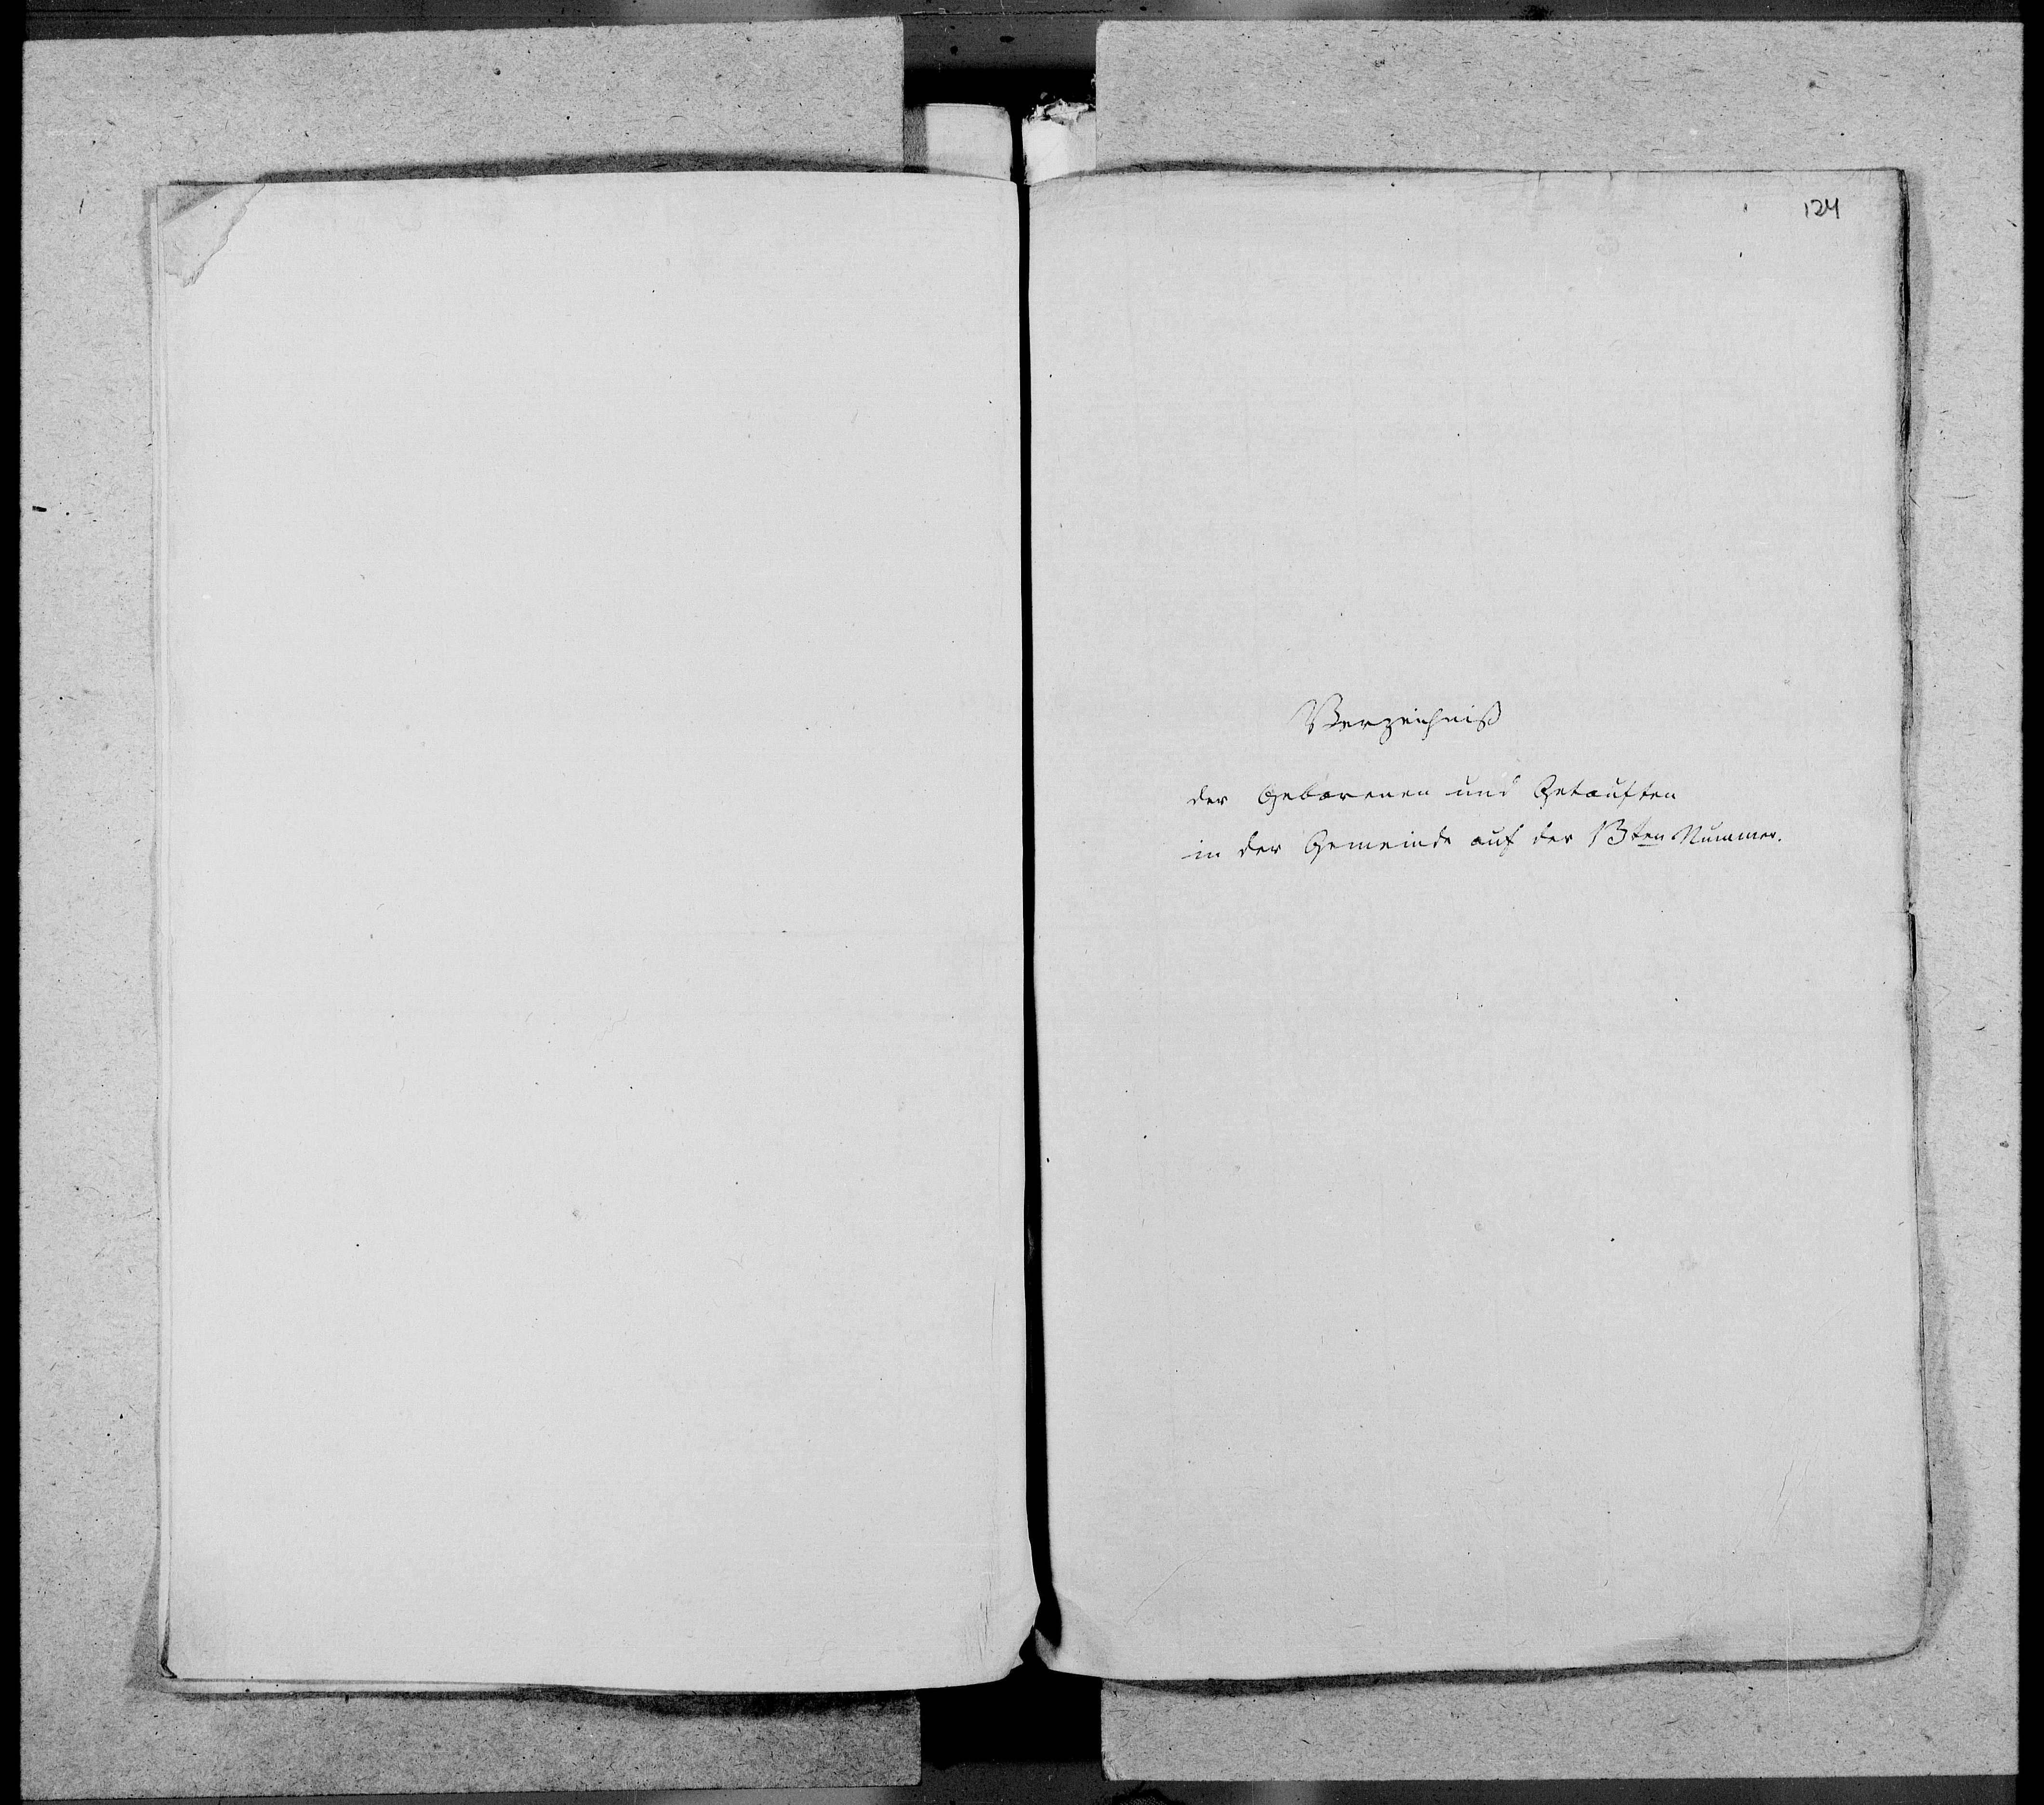 124
Verzeichniß
der Geborenen und Getauften
in der Gemeinde auf der 13ten Nummer.